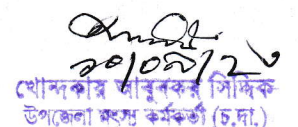 ২০/০৯/২৩
খোন্দকার আবুবকর সিদ্দিক
উপজেলা মৎস্য কর্মকর্তা (চ.দা.)